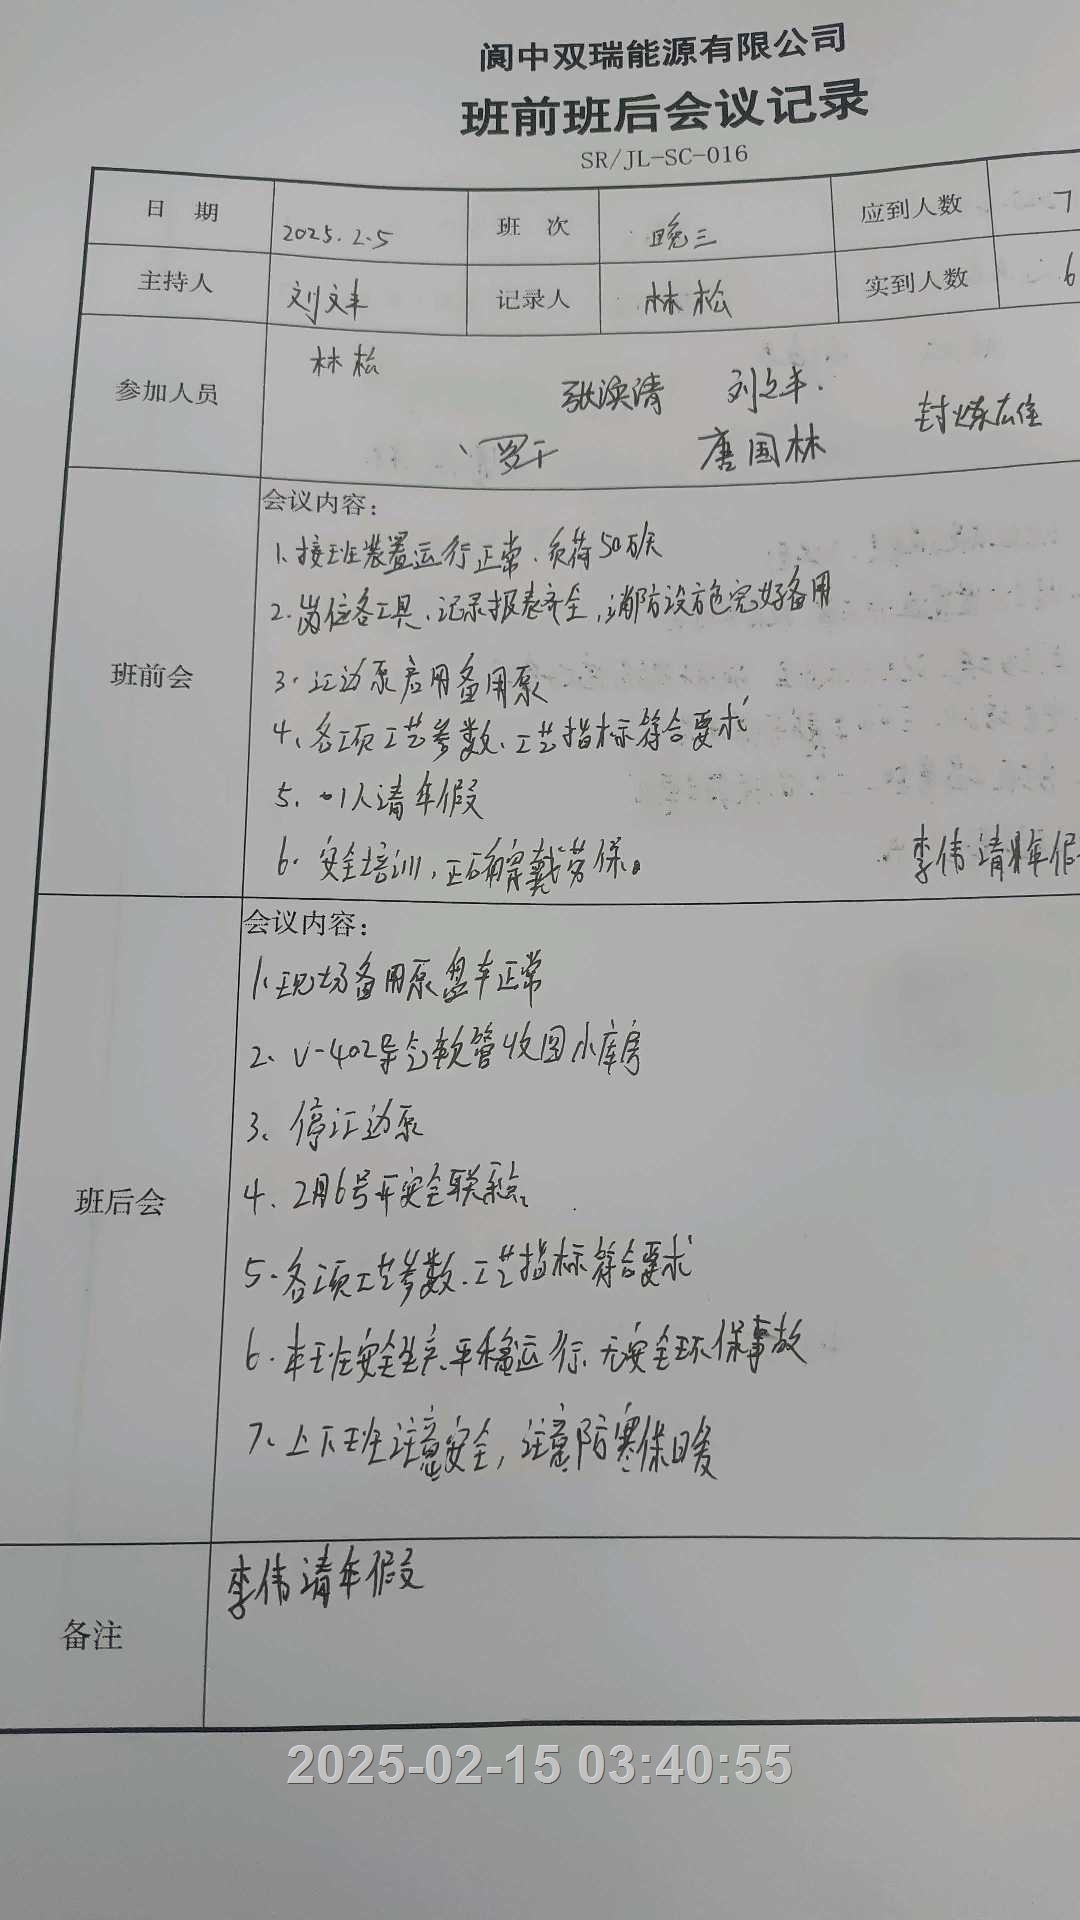 阆中双瑞能源有限公司
班前班后会议记录
SR/JL-SC-016
日 期 2025.2.5 班 次 晚三 应到人数 7
主持人 刘文丰 记录人 林松 实到人数 6
参加人员 林松
张 清 刘文丰.
罗 唐国林 封
班前会
会议内容:
1.接班装置运行正常、负荷50万/天
2.岗位各工具、记录报表齐全,消防设施完好备用
3.江边泵启用备用泵
4、各项工艺参数、工艺指标符合要求
5、1人请年假
6.安全培训,正确穿戴劳保。
李伟请年假
班后会
会议内容:
1.现场备用泵盘车正常
2、V-402导气软管收回小库房
3、停江边泵
4、2月6号开安全联系会。
5.各项工艺参数、工艺指标符合要求
6.本班安全生产、平稳运行、无安全环保事故
7、上下班注意安全,注意防寒保暖
备注 李伟请年假
2025-02-15 03:40:55